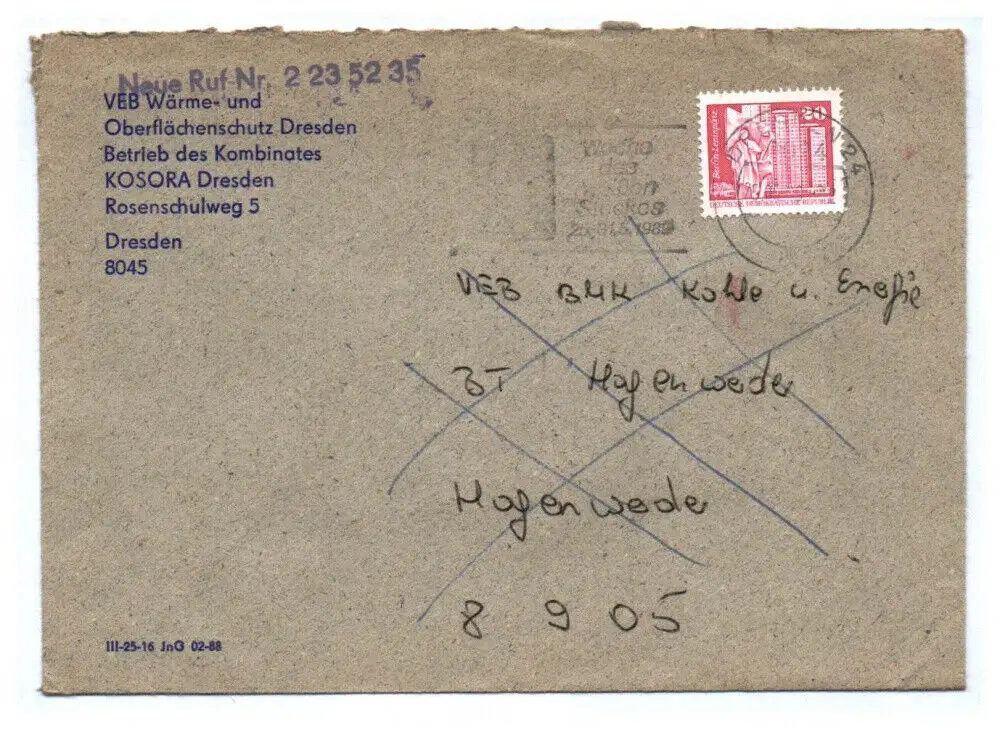 Neue Ruf-Nr. 2 23 52 35
VEB Wärme- und
Oberflächenschutz Dresden
Betrieb des Kombinates
KOSORA Dresden
Rosenschulweg 5
Dresden
8045
Woche
des
25.-31.5.1989
20
Berlin-Leninplatz
DEUTSCHE DEMOKRATISCHE REPUBLIK
24
VEB BMK Kohle u. Energie
BT Hagenwerder
Hagenwerder
8 9 05
III-25-16 JnG 02-88